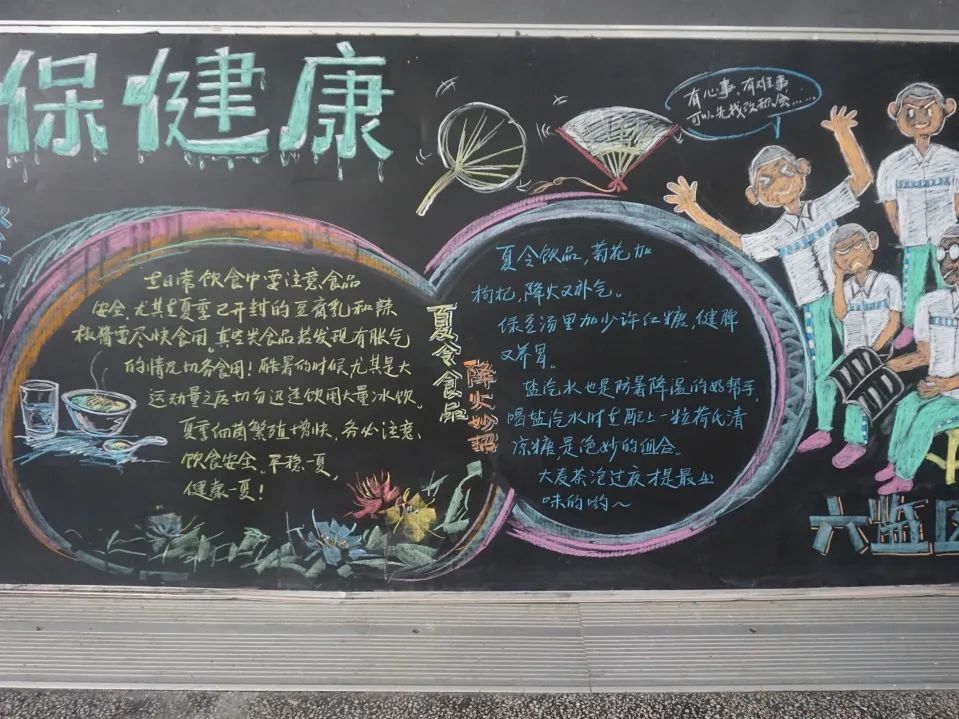 保健康
有心事、有难事
可以先找改积会……
在日常饮食中要注意食品
安全,尤其是夏季已开封的豆腐乳和辣
椒酱要尽快食用。真空类食品若发现有胀气
的情况切务食用!酷暑的时候尤其是大
运动量之后切勿迅速饮用大量冰饮。
夏季细菌繁殖增快,务必注意、
饮食安全。平稳一夏,
健康一夏!
夏令食品
降火妙招
夏令饮品,菊花加
枸杞,降火又补气。
绿豆汤里加少许红糖,健脾
又养胃。
盐汽水也是防暑降温的好帮手,
喝盐汽水时在配上一粒荷氏清
凉糖是绝妙的组合。
大麦茶泡过夜才是最上
味的哟~
六监区